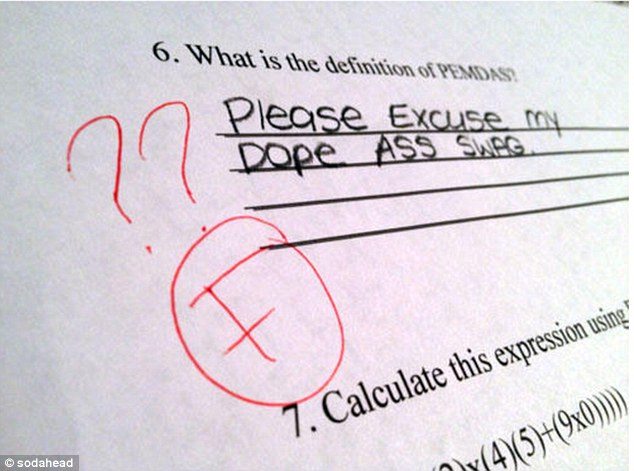 6. What is the definition of PEMDAS?
??
Please Excuse my
Dope Ass Swag.
F
7. Calculate this expression using
)x(4)(5)+(9x0)))))
© sodahead